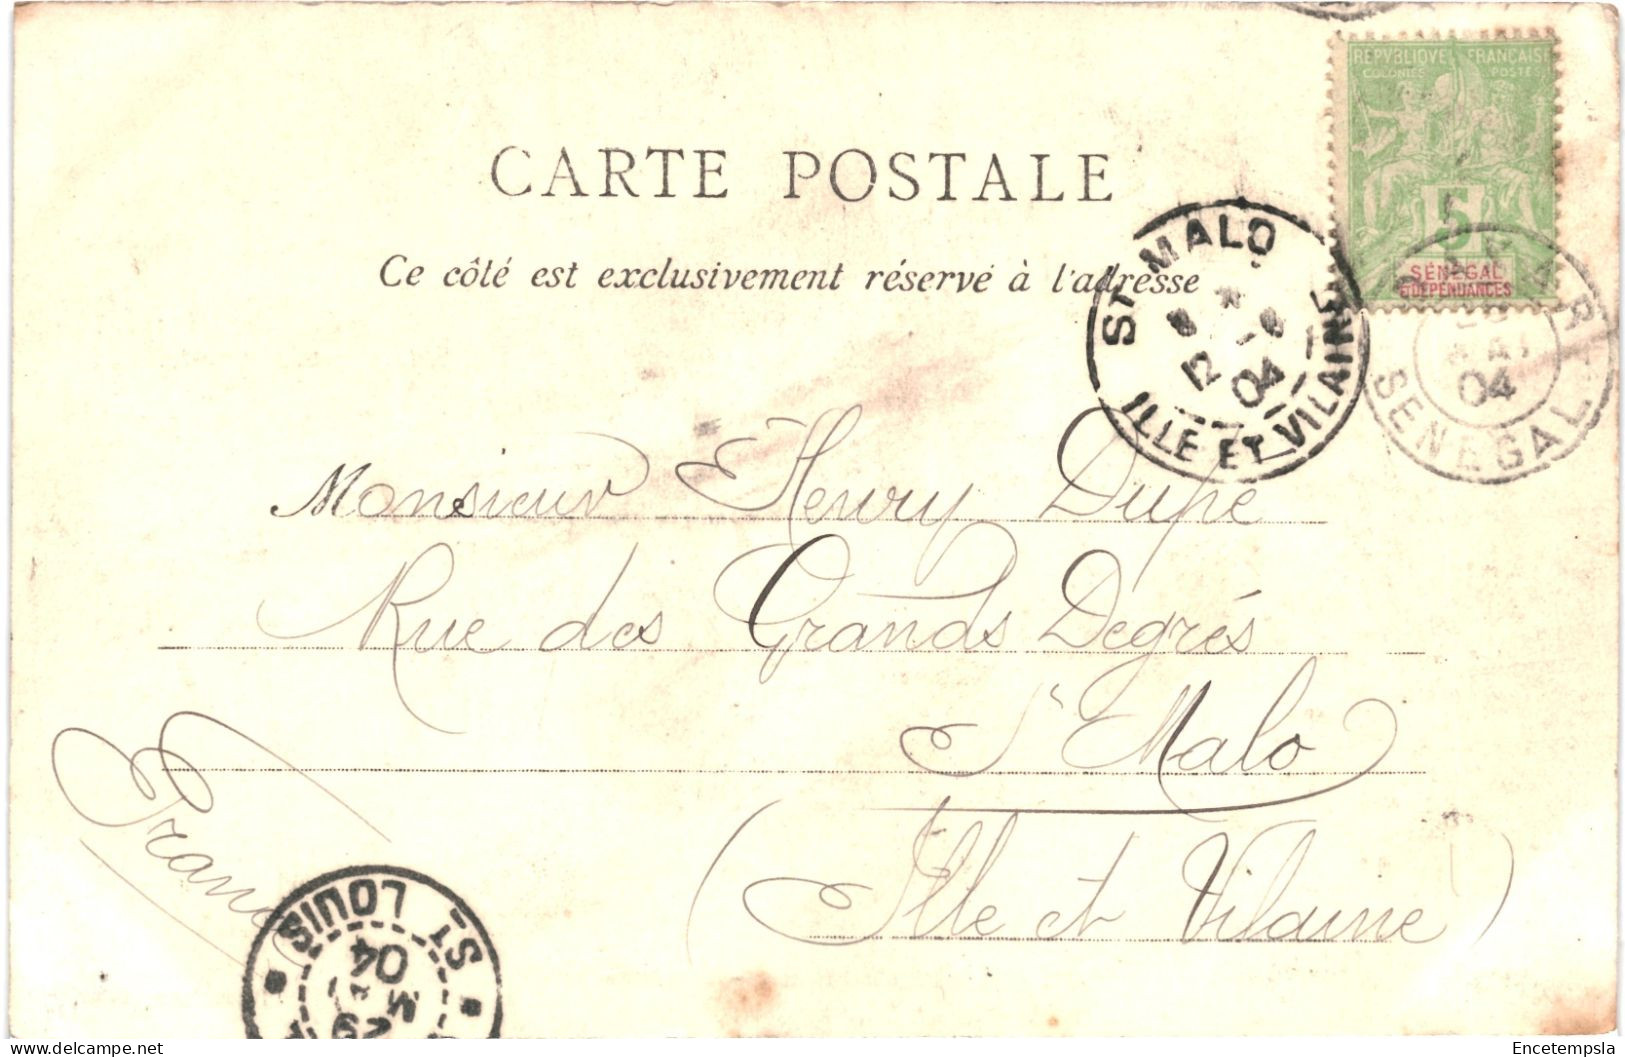 RÉPVBLIQVE FRANÇAISE
COLONIES POSTES
5
SÉNÉGAL
& DÉPENDANCES
CARTE POSTALE
Ce côté est exclusivement réservé à l'adresse
ST MALO
12 04
ILLE ET VILAINE
04
SENEGAL
Monsieur Henry Dupe
Rue des Grands Degrés
St Malo
(Ille et Vilaine)
France
ST LOUIS
04
Delcampe.net
Encetempsla